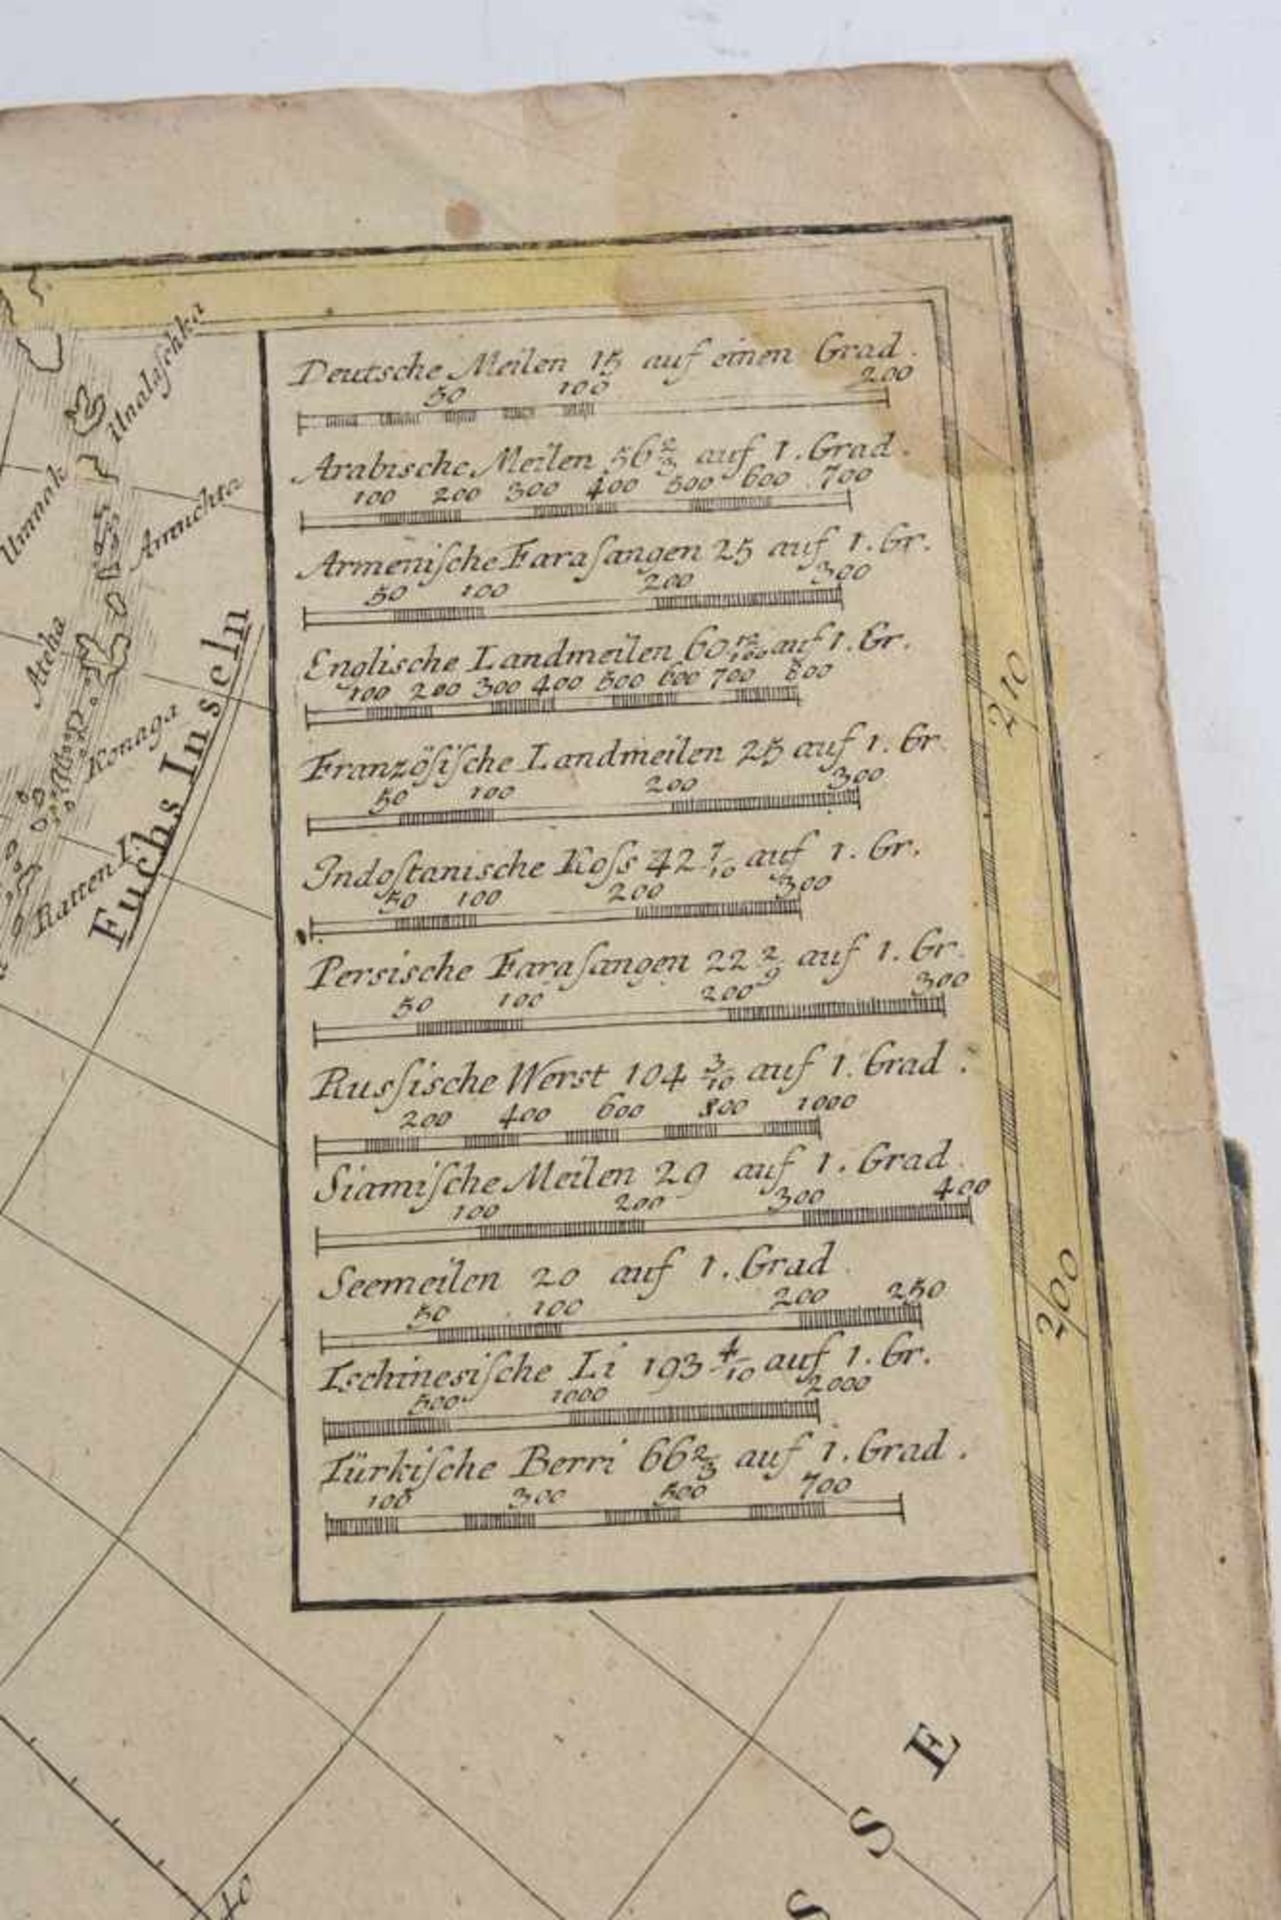 Deutsche Meilen 15 auf einen Grad.
50 100 200
Arabische Meilen 56 2/3 auf 1. Grad.
100 200 300 400 500 600 700
Armeniſche Faraſangen 25 auf 1. Gr.
50 100 200 300
Engliſche Landmeilen 60 12/100 auf 1. Gr.
100 200 300 400 500 600 700 800
Französiſche Landmeilen 25 auf 1. Gr.
50 100 200 300
Indoſtanische Koſs 42 7/10 auf 1. Gr.
50 100 200 300
Persische Faraſangen 22 2/9 auf 1. Gr.
50 100 200 300
Rusſische Werst 104 3/10 auf 1. Grad.
200 400 600 800 1000
Siamiſche Meilen 29 auf 1. Grad.
100 200 300 400
Seemeilen 20 auf 1. Grad.
50 100 200 250
Tschinesiſche Li 193 4/10 auf 1. Gr.
500 1000 2000
Türkiſche Berri 66 2/3 auf 1. Grad.
100 300 500 700
Unalaſchka
Umnak
Amuchta
Atcha
Konaga
Ratten I.
Fuchs Inseln
210
200
40
S S E